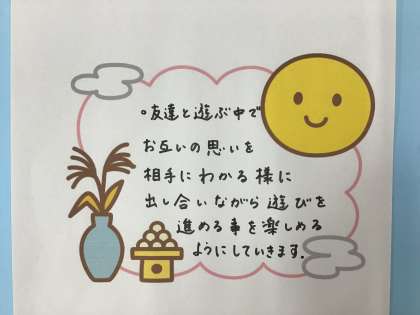 。友達と遊ぶ中で
お互いの思いを
相手にわかる様に
出し合いながら遊びを
進める事を楽しめる
ようにしていきます。